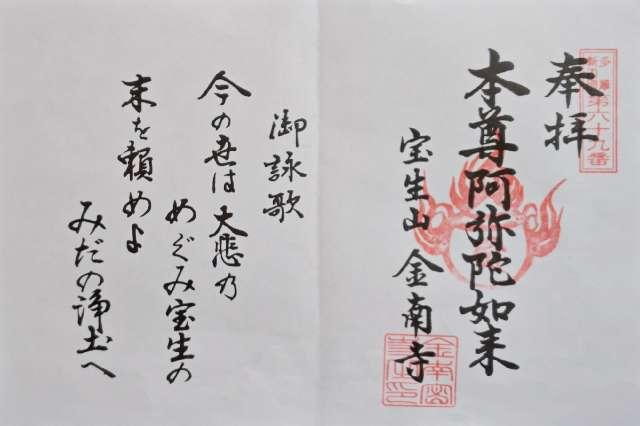 第六十九番
奉拝
本尊阿弥陀如来
宝生山 金南寺
御詠歌
今の世は大悲乃
めぐみ宝生の
末を頼めよ
みだの浄土へ